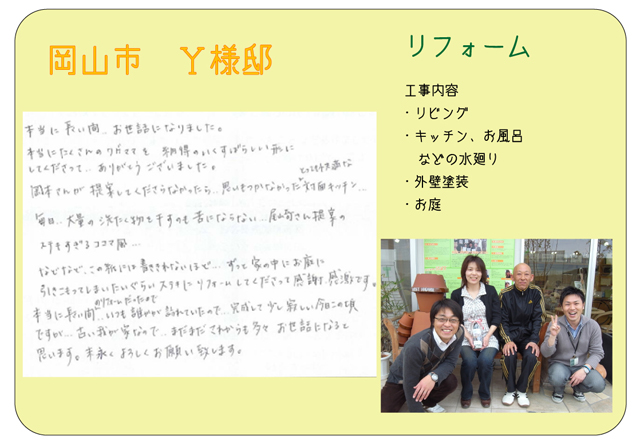 岡山市 Y様邸
リフォーム
工事内容
・リビング
・キッチン、お風呂
などの水廻り
・外壁塗装
・お庭
本当に長い間…お世話になりました。
本当にたくさんのワガママを 納得のいくすばらしい形に
してくださって…ありがとうございました。
とっても快適な
岡本さんが提案してくださらなかったら…思いもつかなかった対面キッチン…
毎日…大量の洗たく物を干すのも苦にならない…尾崎さん提案の
ステキすぎるココマ風…
などなど…この紙には書ききれないほど…ずっと家の中にお庭に
引きこもってしまいたいぐらいステキにリフォームしてくださって感謝、感激です。
リフォームだったので
本当に長い間…いつも誰かが訪れていたので…完成して少し寂しい今日この頃
ですが…古い我が家なので…まだまだこれからも多々お世話になると
思います。末永くよろしくお願い致します。